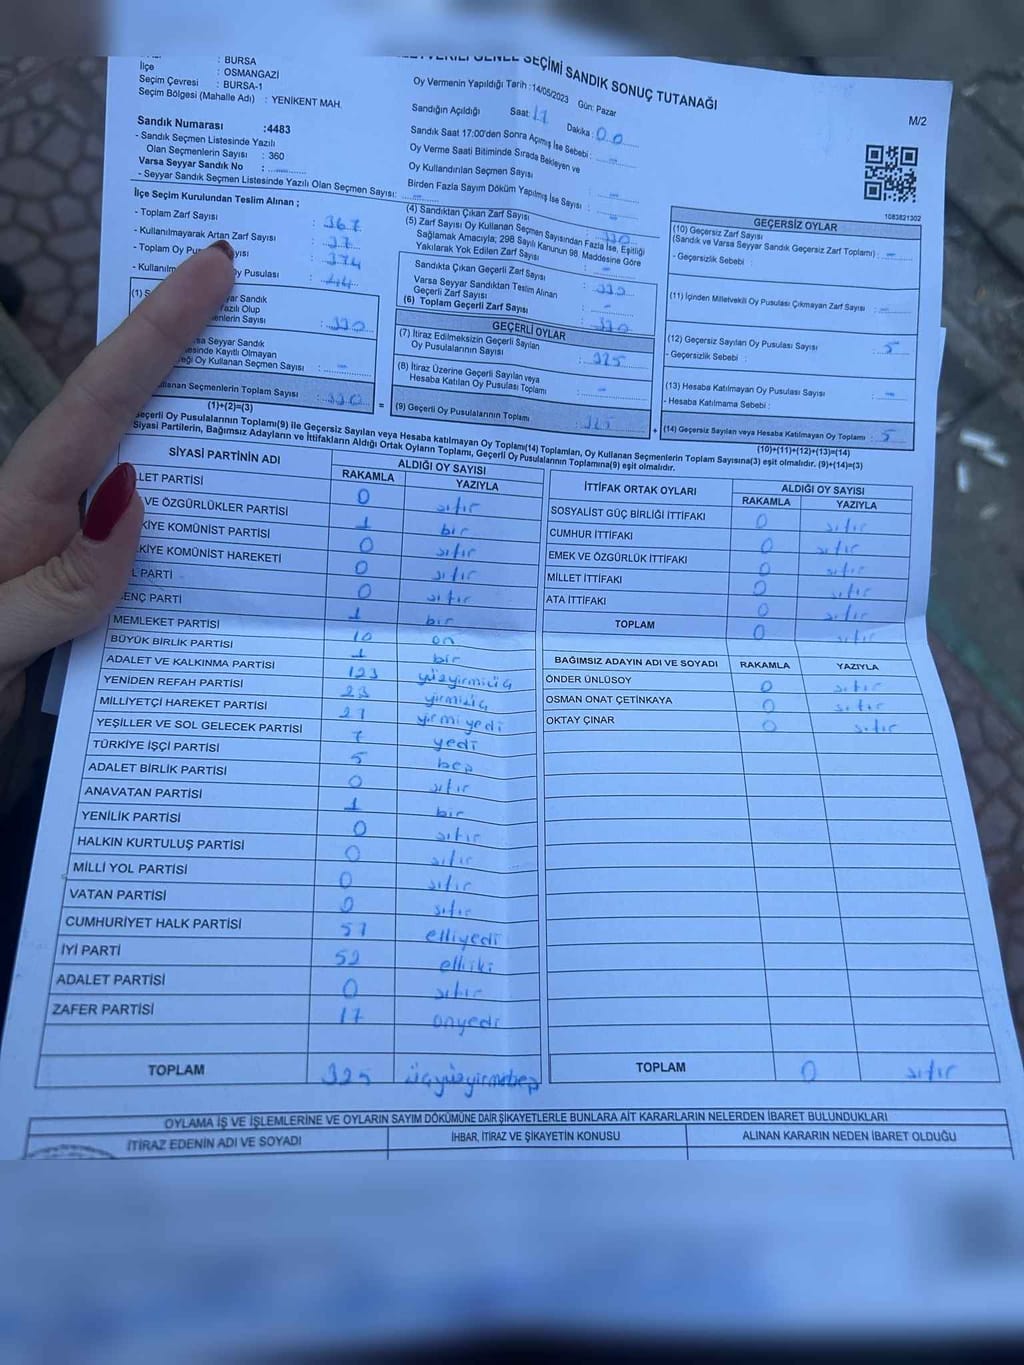 : BURSA
İlçe : OSMANGAZİ
Seçim Çevresi : BURSA-1
Seçim Bölgesi (Mahalle Adı) : YENİKENT MAH.
SEÇİMİ SANDIK SONUÇ TUTANAĞI
M/2
Oy Vermenin Yapıldığı Tarih :14/05/2023 Gün: Pazar
Sandığın Açıldığı Saat: 17 Dakika : 00
Sandık Saat 17:00'den Sonra Açımış İse Sebebi :
Oy Verme Saati Bitiminde Sırada Bekleyen ve
Oy Kullandırılan Seçmen Sayısı
Birden Fazla Sayım Döküm Yapılmış İse Sayısı :
Sandık Numarası :4483
- Sandık Seçmen Listesinde Yazılı
Olan Seçmenlerin Sayısı : 360
Varsa Seyyar Sandık No :
- Seyyar Sandık Seçmen Listesinde Yazılı Olan Seçmen Sayısı:
1083821302
İlçe Seçim Kurulundan Teslim Alınan ;
- Toplam Zarf Sayısı : 367
- Kullanılmayarak Artan Zarf Sayısı : 37
- Toplam Oy : 374
Oy Pusulası : 44
Yazılı Olup
: 330
Seyyar Sandık
Kayıtlı Olmayan
Oy Kullanan Seçmen Sayısı :
Seçmenlerin Toplam Sayısı : 330
(1)+(2)=(3)
(4) Sandıktan Çıkan Zarf Sayısı : 330
(5) Zarf Sayısı Oy Kullanan Seçmen Sayısından Fazla İse, Eşitliği
Sağlamak Amacıyla; 298 Sayılı Kanunun 98. Maddesine Göre
Yakılarak Yok Edilen Zarf Sayısı : -
Sandıkta Çıkan Geçerli Zarf Sayısı : 330
Varsa Seyyar Sandıktan Teslim Alınan
Geçerli Zarf Sayısı : -
(6) Toplam Geçerli Zarf Sayısı : 330
GEÇERLİ OYLAR
(7) İtiraz Edilmeksizin Geçerli Sayılan
Oy Pusulalarının Sayısı : 325
(8) İtiraz Üzerine Geçerli Sayılan veya
Hesaba Katılan Oy Pusulası Toplamı : -
= (9) Geçerli Oy Pusulalarının Toplamı : 325
GEÇERSİZ OYLAR
(10) Geçersiz Zarf Sayısı
(Sandık ve Varsa Seyyar Sandık Geçersiz Zarf Toplamı) : -
- Geçersizlik Sebebi :
(11) İçinden Milletvekili Oy Pusulası Çıkmayan Zarf Sayısı : -
(12) Geçersiz Sayılan Oy Pusulası Sayısı : 5
- Geçersizlik Sebebi :
(13) Hesaba Katılmayan Oy Pusulası Sayısı : -
- Hesaba Katılmama Sebebi :
+ (14) Geçersiz Sayılan veya Hesaba Katılmayan Oy Toplamı : 5
(10)+(11)+(12)+(13)=(14)
Geçerli Oy Pusulalarının Toplamı(9) ile Geçersiz Sayılan veya Hesaba katılmayan Oy Toplamı(14) Toplamları, Oy Kullanan Seçmenlerin Toplam Sayısına(3) eşit olmalıdır. (9)+(14)=(3)
Siyasi Partilerin, Bağımsız Adayların ve İttifakların Aldığı Ortak Oyların Toplamı, Geçerli Oy Pusulalarının Toplamına(9) eşit olmalıdır.
SİYASİ PARTİNİN ADI ALDIĞI OY SAYISI
RAKAMLA YAZIYLA
PARTİSİ 0 sıfır
VE ÖZGÜRLÜKLER PARTİSİ 1 bir
KOMÜNİST PARTİSİ 0 sıfır
KOMÜNİST HAREKETİ 0 sıfır
PARTİ 0 sıfır
PARTİ 1 bir
MEMLEKET PARTİSİ 10 on
BÜYÜK BİRLİK PARTİSİ 1 bir
ADALET VE KALKINMA PARTİSİ 123 yüzyirmiüç
YENİDEN REFAH PARTİSİ 23 yirmiüç
MİLLİYETÇİ HAREKET PARTİSİ 27 yirmiyedi
YEŞİLLER VE SOL GELECEK PARTİSİ 7 yedi
TÜRKİYE İŞÇİ PARTİSİ 5 beş
ADALET BİRLİK PARTİSİ 0 sıfır
ANAVATAN PARTİSİ 1 bir
YENİLİK PARTİSİ 0 sıfır
HALKIN KURTULUŞ PARTİSİ 0 sıfır
MİLLİ YOL PARTİSİ 0 sıfır
VATAN PARTİSİ 0 sıfır
CUMHURİYET HALK PARTİSİ 57 elliyedi
İYİ PARTİ 52 elliiki
ADALET PARTİSİ 0 sıfır
ZAFER PARTİSİ 17 onyedi
TOPLAM 325 üçyüzyirmibeş
İTTİFAK ORTAK OYLARI ALDIĞI OY SAYISI
RAKAMLA YAZIYLA
SOSYALİST GÜÇ BİRLİĞİ İTTİFAKI 0 sıfır
CUMHUR İTTİFAKI 0 sıfır
EMEK VE ÖZGÜRLÜK İTTİFAKI 0 sıfır
MİLLET İTTİFAKI 0 sıfır
ATA İTTİFAKI 0 sıfır
TOPLAM 0 sıfır
BAĞIMSIZ ADAYIN ADI VE SOYADI RAKAMLA YAZIYLA
ÖNDER ÜNLÜSOY 0 sıfır
OSMAN ONAT ÇETİNKAYA 0 sıfır
OKTAY ÇINAR 0 sıfır
TOPLAM 0 sıfır
OYLAMA İŞ VE İŞLEMLERİNE VE OYLARIN SAYIM DÖKÜMÜNE DAİR ŞİKAYETLERLE BUNLARA AİT KARARLARIN NELERDEN İBARET BULUNDUKLARI
İTİRAZ EDENİN ADI VE SOYADI İHBAR, İTİRAZ VE ŞİKAYETİN KONUSU ALINAN KARARIN NEDEN İBARET OLDUĞU